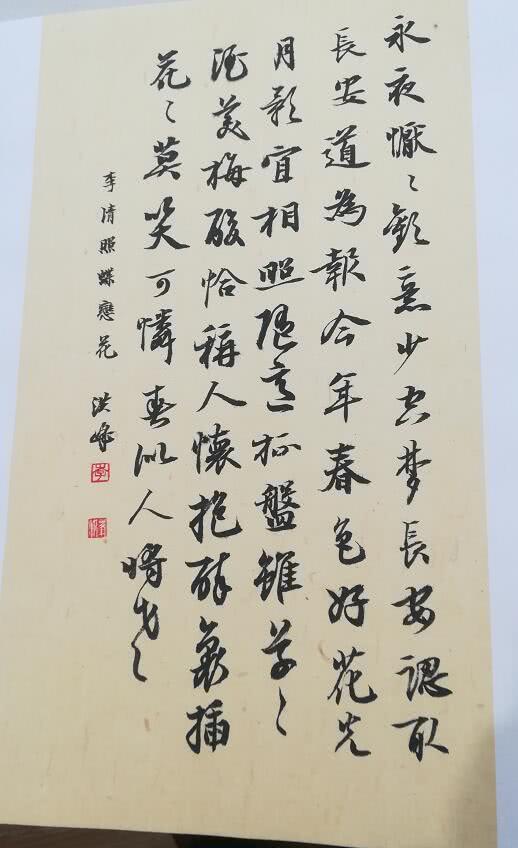 永夜懨〻歡意少空夢長安認取
長安道為報今年春色好花光
月影宜相照隨意杯盤雖草〻
酒美梅酸恰稱人懷抱醉裏插
花〻莫笑可憐春似人將老
李清照蝶戀花 洪峰
李